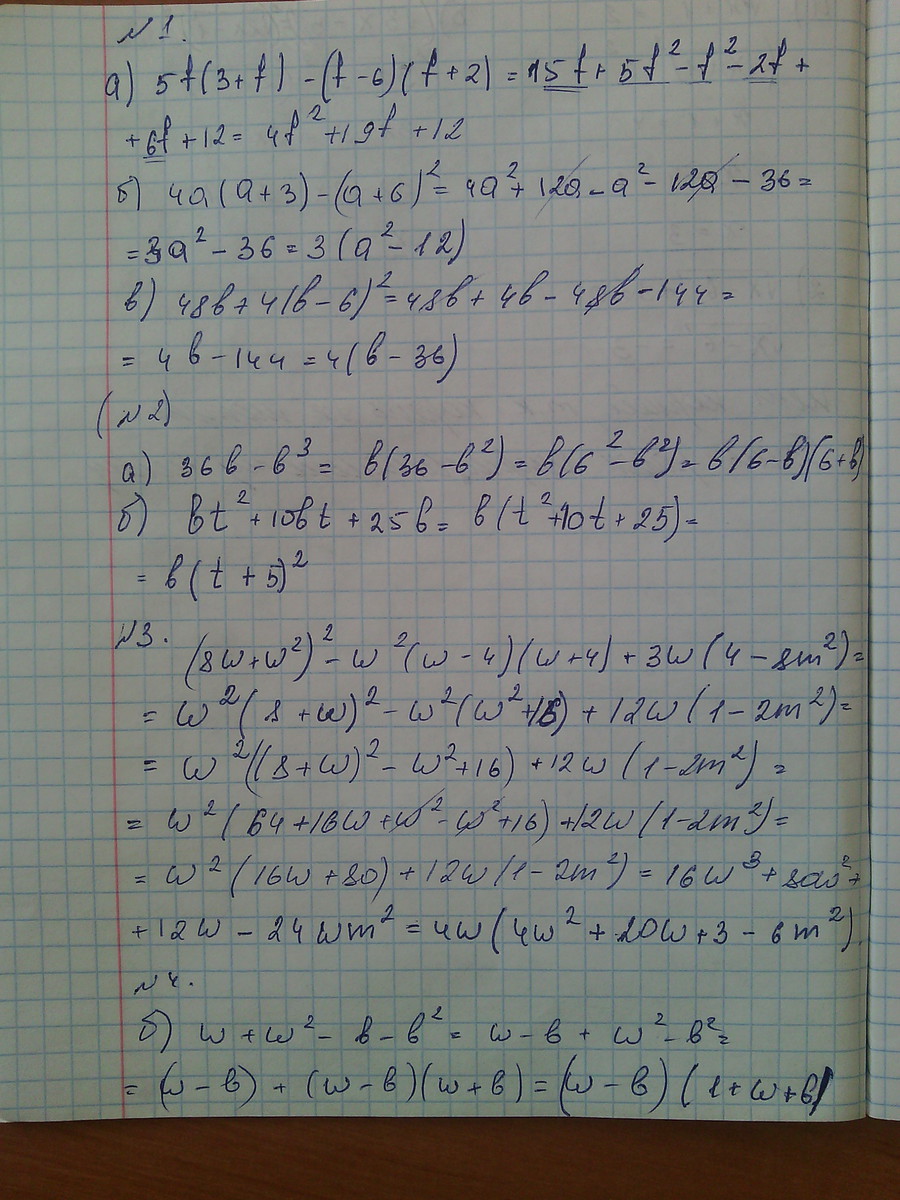 №1.
а) 5f(3+f) -(f-6)(f+2) = 15f + 5f² - f² - 2f +
+6f +12 = 4f² +19f +12
б) 4a(a+3)-(a+6)² = 4a² + 12a - a² - 12a - 36 =
= 3a² - 36 = 3(a² - 12)
в) 48в + 4(в-6)² = 48в + 4в - 48в - 144 =
= 4в - 144 = 4(в - 36)
(№2)
а) 36в - в³ = в(36-в²) = в(6²-в²) = в(6-в)(6+в)
б) вt² + 10вt + 25в = в(t²+10t+25) =
= в(t+5)²
№3.
(8w+w²)² - w²(w-4)(w+4) + 3w(4-8m²) =
= w²(8+w)² - w²(w²+16) + 12w(1-2m²) =
= w²((8+w)² - w²+16) + 12w(1-2m²) =
= w²(64+16w+w²-w²+16) + 12w(1-2m²) =
= w²(16w+80) + 12w(1-2m²) = 16w³ + 80w² +
+12w - 24wm² = 4w(4w² + 20w + 3 - 6m²)
№4.
б) w + w² - в - в² = w - в + w² - в² =
= (w-в) + (w-в)(w+в) = (w-в)(1+w+в)